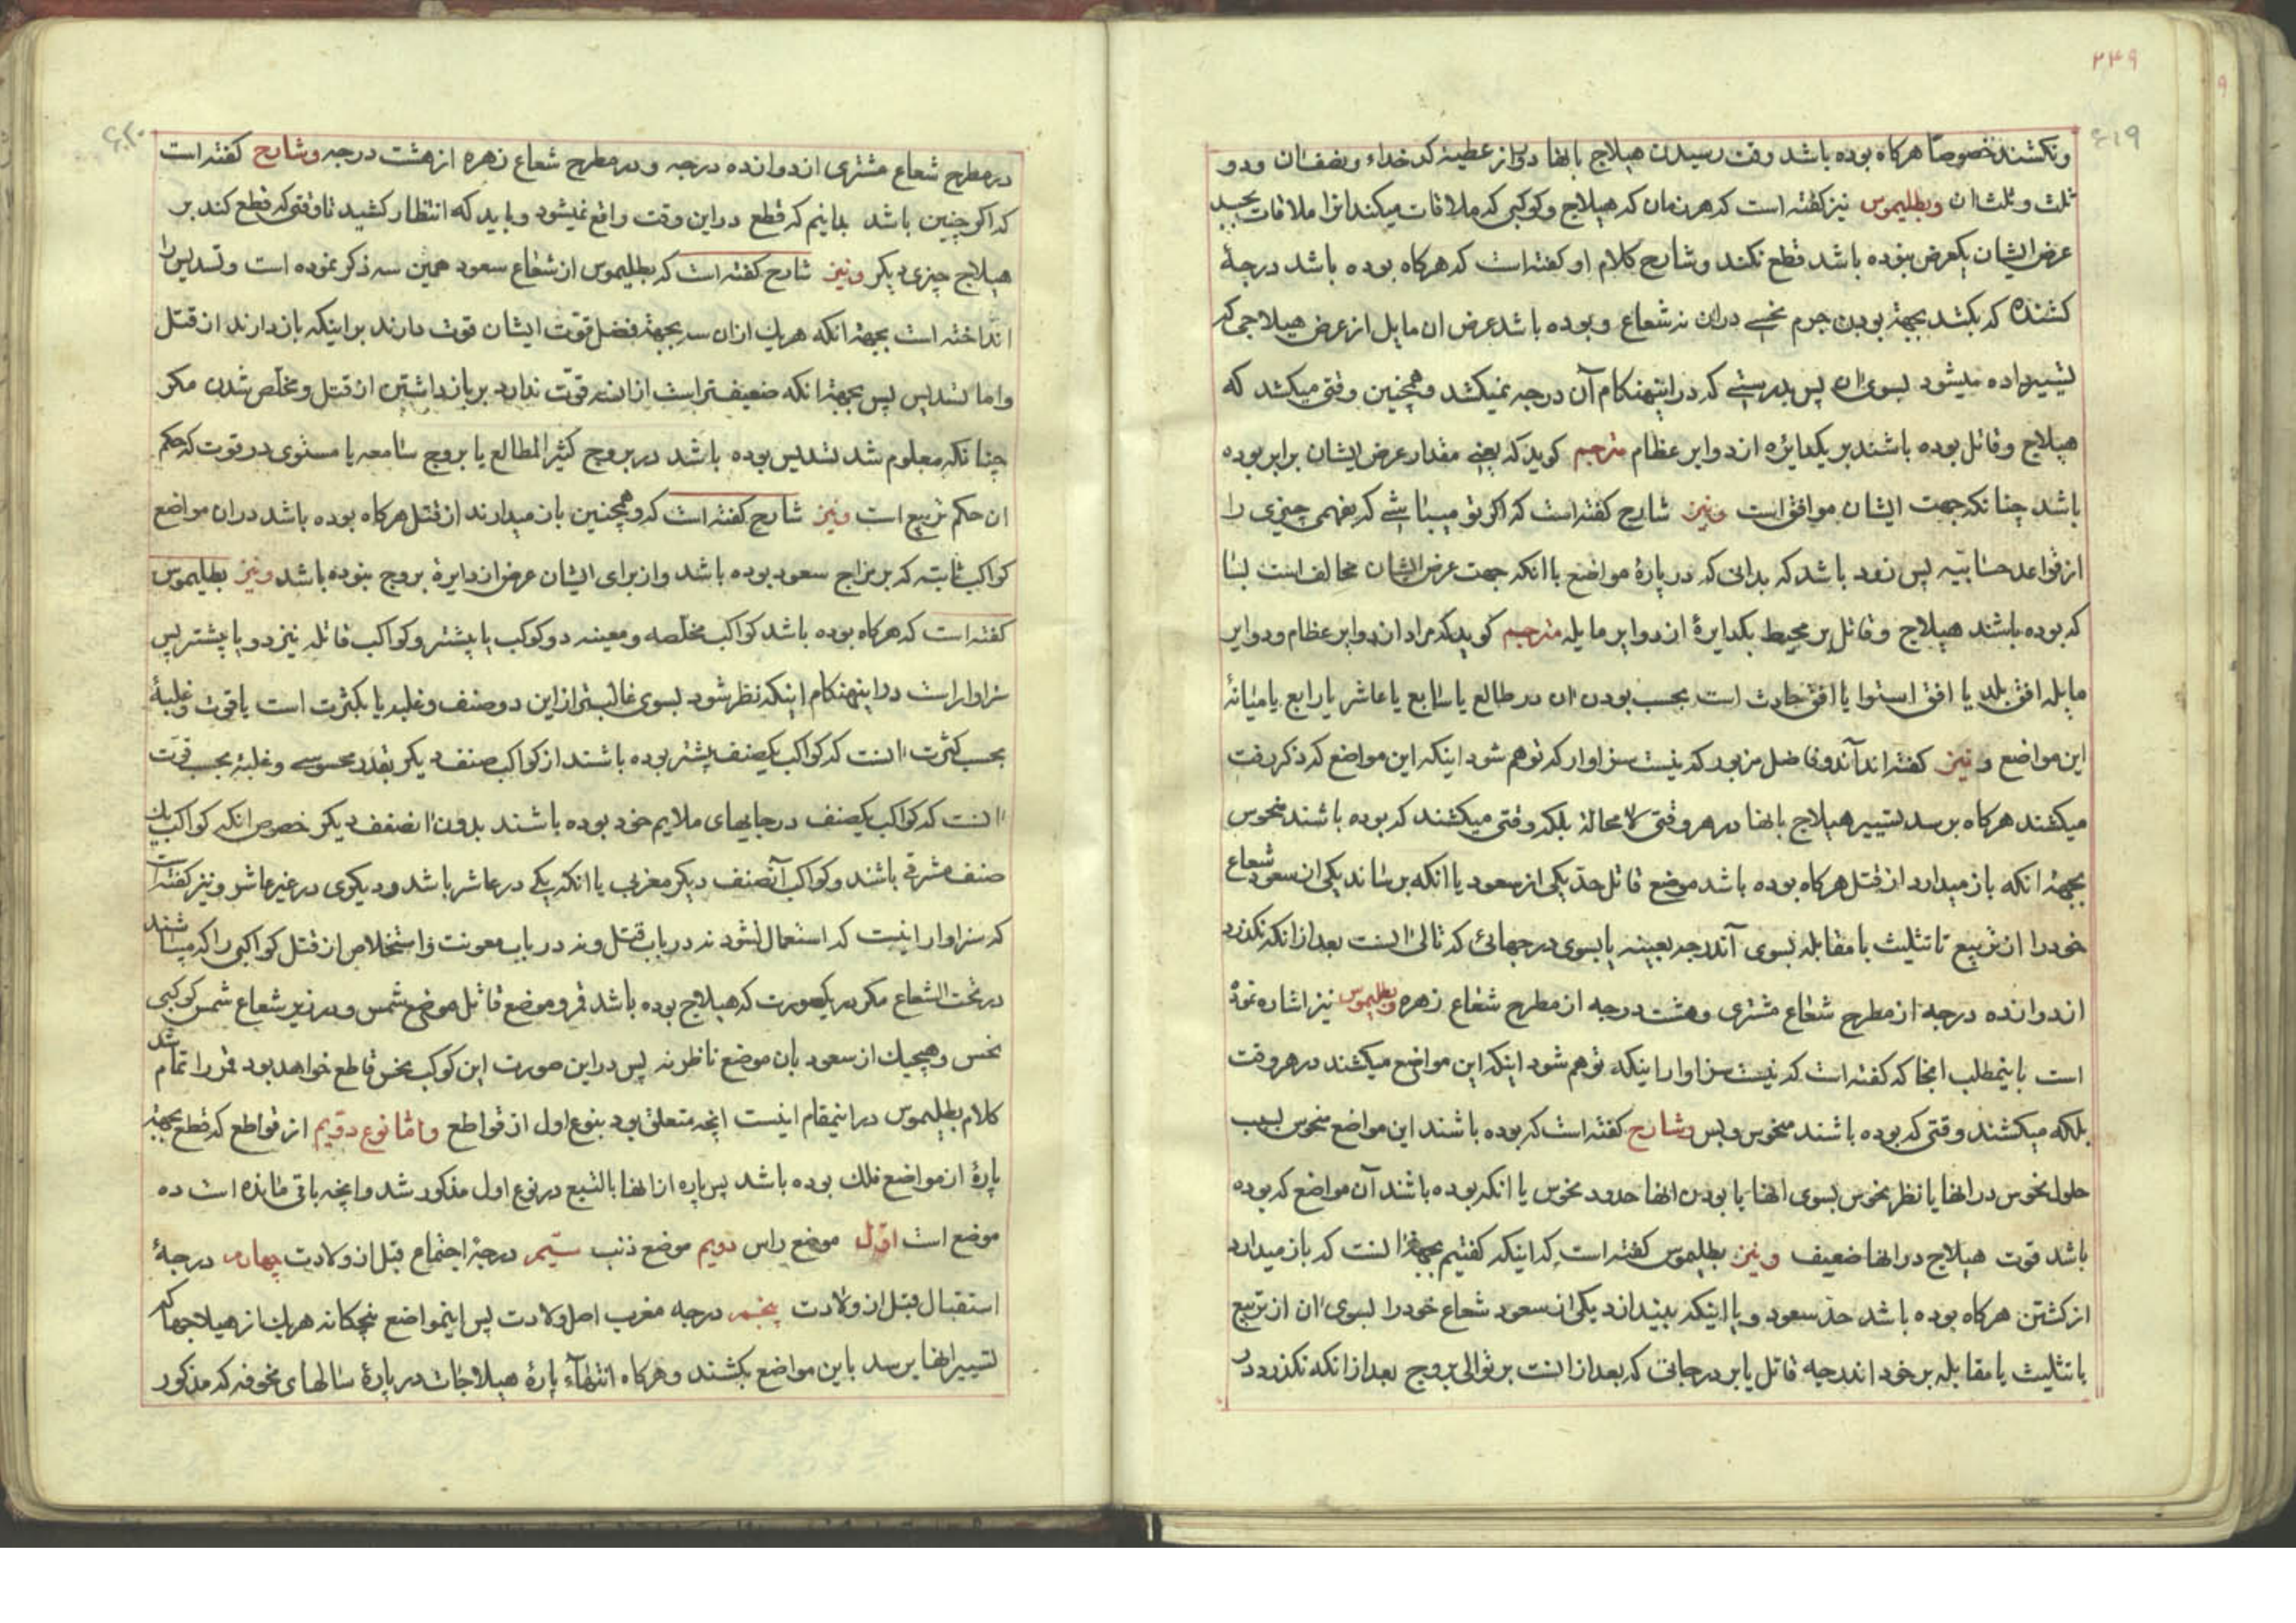 ۲۴۹
۶۱۹
ونکشند خصوصًا هرکاه بوده باشد وقت رسیدن هیلاج بانها دور از عطیۀ کدخداء و نصف ان و دو
ثلث و ثلث ان وبطلیموس نیز کفته است که هر زمان که هیلاج و کوکبی که ملاقات میکند انرا ملاقات بجسد
عرض ایشان یکعرض نبوده باشد قطع نکند و شارح کلام او کفته است که هرکاه بوده باشد درجۀ
کشنده که بکشد بجهة بودن جرم نحسی در ان نه شعاع و بوده باشد عرض ان مایل از عرض هیلاجی که
تسییر داده میشود بسوی ان پس بدرستی که در اینهنکام آن درجه نمیکشد و همچنین وقتی میکشد که
هیلاج و قاتل بوده باشند بر یکدایره از دوایر عظام مترجم کوید که یعنی مقدار عرض ایشان برابر بوده
باشد چنانکه جهت ایشان موافق است ونیز شارح کفته است که اکر تو میباشی که بفهمی چیزی را
از قواعد حسابیه پس زود باشد که بدانی که در پارۀ مواضع با انکه جهت عرض ایشان مخالف است بسا
که بوده باشند هیلاج و قاتل بر محیط یکدایرۀ از دوایر مایله مترجم کوید که مراد از دوایر عظام و دوایر
مایله افق بلد یا افق استوا یا افق حادث است بحسب بودن ان در طالع یا سابع یا عاشر یا رابع یا میانۀ
این مواضع ونیز کفته اند آندو فاضل مزبور که نیست سزاوار که توهم شود اینکه این مواضع که ذکر رفت
میکشند هرکاه برسد تسییر هیلاج بانها در هر وقتی لا محالة بلکه وقتی میکشند که بوده باشند منحوس
بجهة انکه باز میدارد از قتل هرکاه بوده باشد موضع قاتل حدّ یکی از سعود یا انکه برساند یکی ان سعود شعاع
خود را از تربیع تا تثلیث یا مقابله بسوی آندرجه بعینه یا بسوی درجهائی که تالی انست بعد از انکه نکذرد
از دوازده درجه از مطرح شعاع مشتری و هشت درجه از مطرح شعاع زهره وبطلیموس نیز اشاره نموده
است باینمطلب انجا که کفته است که نیست سزاوار اینکه توهم شود اینکه این مواضع میکشند در هر وقت
بلکه میکشند وقتی که بوده باشند منحوس و بس وشارح کفته است که بوده باشند این مواضع منحوس بسبب
حلول نحوس در انها یا نظر نحوس بسوی انها یا بودن انها حدود نحوس یا انکه بوده باشند آن مواضع که بوده
باشد قوت هیلاج در انها ضعیف ونیز بطلیموس کفته است که اینکه کفتیم بجهة انست که باز میدارد
از کشتن هرکاه بوده باشد حدّ سعود و یا اینکه بیندازد یکی از سعود شعاع خود را بسوی ان از تربیع
یا تثلیث یا مقابله بر خود اندرجه قاتل یا بر درجاتی که بعد از انست بر توالی بروج بعد از انکه نکذرد در
۶۲۰
در مطرح شعاع مشتری از دوازده درجه و در مطرح شعاع زهره از هشت درجه وشارح کفته است
که اکر چنین باشد بدانیم که قطع در این وقت واقع نمیشود و باید که انتظار کشید تا وقتی که قطع کند بر
هیلاج چیزی دیکر ونیز شارح کفته است که بطلیموس از شعاع سعود همین سه ذکر نموده است و تسدیس را
انداخته است بجهة انکه هریک ازان سه بجهة فضل قوّت ایشان قوت دارند بر اینکه باز دارند از قتل
و اما تسدیس پس بجهة انکه ضعیفتر است از انها قوّت ندارد بر باز داشتن از قتل و مخلّص شدن مکر
چنانکه معلوم شد تسدیس بوده باشد در بروج کثیر المطالع یا بروج سامعه یا مستوی در قوت که حکم
ان حکم تربیع است ونیز شارح کفته است که و همچنین باز میدارند از قتل هرکاه بوده باشد دران مواضع
کواکب ثابته که بر مزاج سعود بوده باشد و از برای ایشان عرض از دایرۀ بروج نبوده باشد ونیز بطلیموس
کفته است که هرکاه بوده باشد کواکب مخلّصه و معینه دو کوکب یا بیشتر و کواکب قاتله نیز دو یا بیشتر پس
سزاوار است در اینهنکام اینکه نظر شود بسوی غالبتر از این دو صنف و غلبه یا بکثرت است یا قوت و غلبۀ
بحسب کثرت انست که کواکب یکصنف بیشتر بوده باشند از کواکب صنف دیکر بقدر محسوسی و غلبۀ بحسب قوّت
انست که کواکب یکصنف در جایهای ملایم خود بوده باشند بدون انصنف دیکر خصوص انکه کواکب یک
صنف مشرقی باشند و کواکب آنصنف دیکر مغربی یا انکه یکی در عاشر باشد و دیکری در غیر عاشر و نیز کفته است
که سزاوار اینست که استعمال نشود نه در باب قتل و نه در باب معونت و استخلاص از قتل کواکبی را که میباشند
در تحت الشعاع مکر در یکصورت که هیلاج بوده باشد قمر و موضع قاتل موضع شمس و در زیر شعاع شمس کوکبی
نحس و هیچیک از سعود بان موضع ناظر نه پس در این صورت این کوکب نحس قاطع خواهد بود قمر را تمام شد
کلام بطلیموس در اینمقام اینست انچه متعلق بود بنوع اول از قواطع واما نوع دویم از قواطع که قطع بجهة
پارۀ از مواضع فلک بوده باشد پس پاره از انها بالتبع در نوع اول مذکور شد و انچه باقی مانده است ده
موضع است اوّل موضع راس دویم موضع ذنب سیّم درجۀ اجتماع قبل از ولادت چهارم درجۀ
استقبال قبل از ولادت پنجم درجه مغرب اصل ولادت پس اینمواضع پنجکانه هریک از هیلاجها که
تسییر انها برسد باین مواضع بکشند و هرکاه انتهآء پارۀ هیلاجات در پارۀ سالهای مخوفه که مذکور